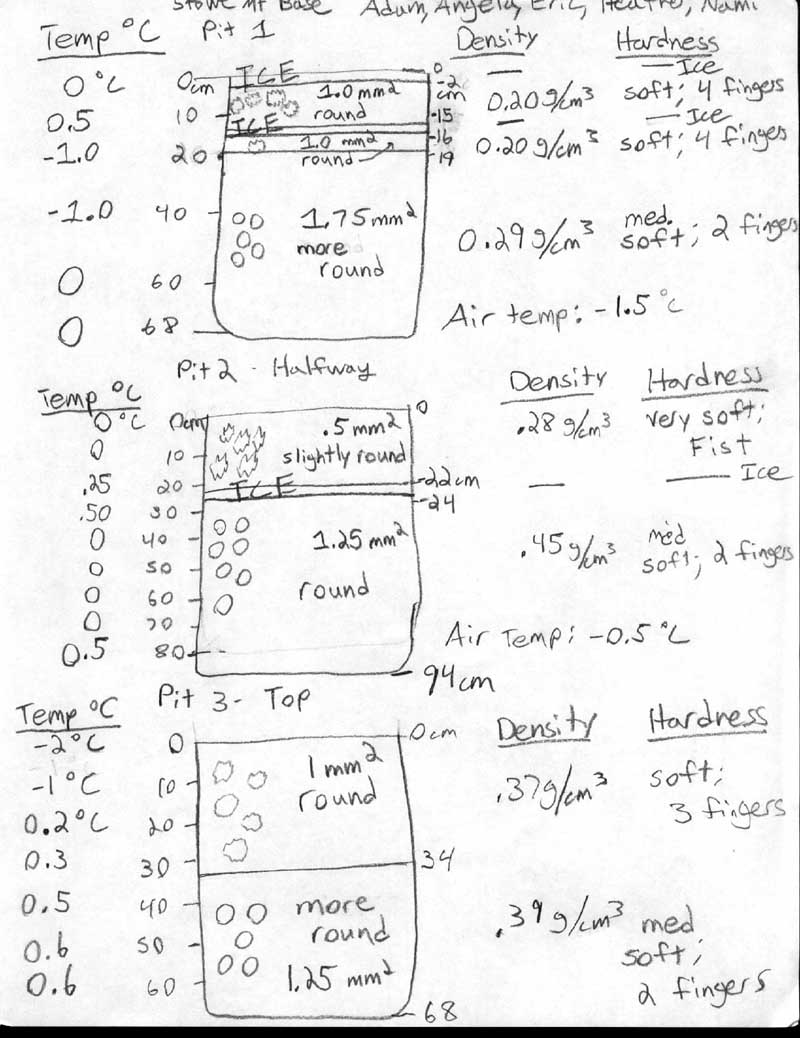 Stowe Mt Base Adam, Angela, Eric, Heather, Nami
Temp °C Pit 1 Density Hardness
0°C 0cm ICE 0 — — Ice
1.0 mm² -2 cm 0.20g/cm³ soft; 4 fingers
0.5 10 round -15 — — Ice
ICE
-1.0 20 1.0 mm² -16 0.20 g/cm³ soft; 4 fingers
round -19
-1.0 40 1.75mm² 0.29g/cm³ med. soft; 2 fingers
more
round
0 60
0 68 Air temp: -1.5°C
Pit 2 - Halfway
Temp °C Density Hardness
0°C 0cm 0 .28 g/cm³ very soft;
0 .5 mm² Fist
10 slightly round
.25 20 ICE -22cm — — Ice
.50 30 -24
0 40 1.25 mm² .45g/cm³ med
0 50 soft; 2 fingers
0 60 round
0 70
0.5 80 Air Temp: -0.5°C
94cm
Pit 3 - Top
Temp °C Density Hardness
-2°C 0 0cm
-1°C 10 1mm² .37g/cm³ soft;
round 3 fingers
0.2°C 20
0.3 30 34
0.5 40 more .39 g/cm³ med
0.6 50 round soft;
0.6 60 1.25 mm² 2 fingers
68